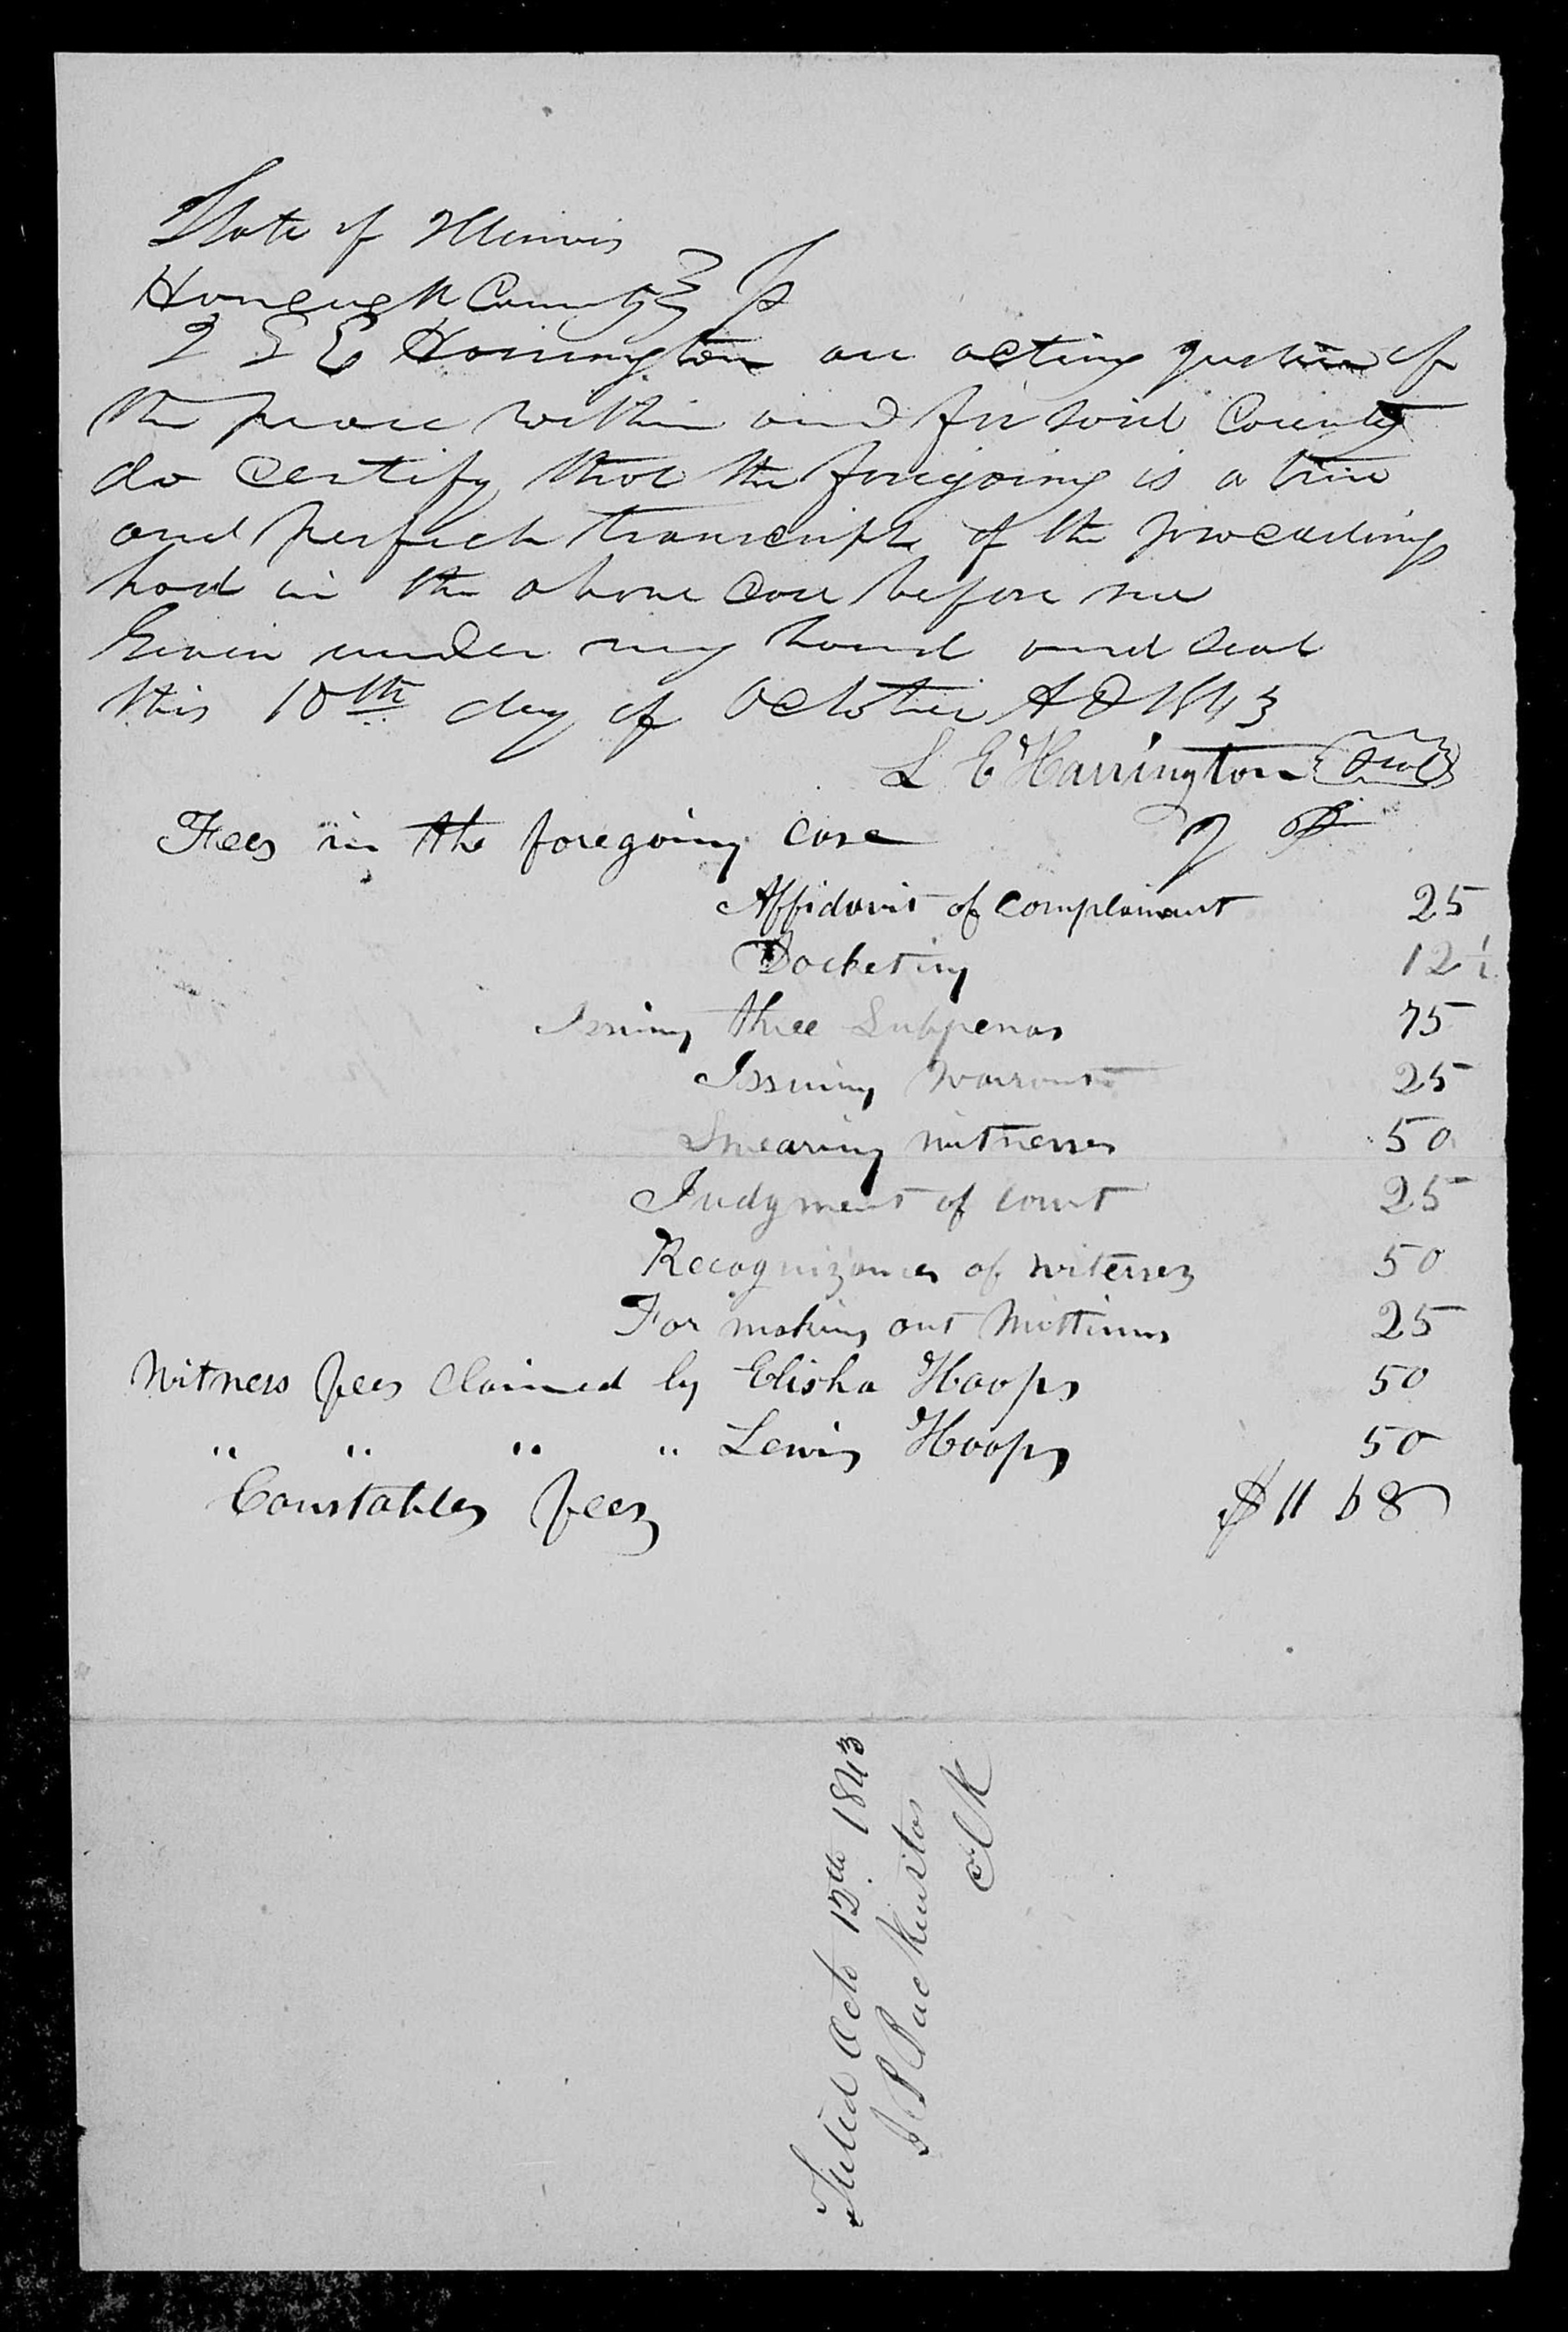 State of Illinois
Hancock County } ss
I L E Harrington an acting justice of
the peace within and for said County
do certify that the foregoing is a true
and perfect transcript of the proceedings
had in the above case before me
Given under my hand and seal
this 10th day of October A D 1843
L E Harrington (seal)
J P
Fees in the foregoing case
Affidavit of complainant 25
Docketing 12 1/2
Issuing three Subpenas 75
Issuing Warrant 25
Swearing witnesses 50
Judgment of court 25
Recognizances of witnesses 50
For making out Mittimus 25
Witness fees claimed by Elisha Hoops 50
" " " " Lewis Hoops 50
Constables fees $11 68
Filed Octo 12th 1843
J B Backenstos
Clk